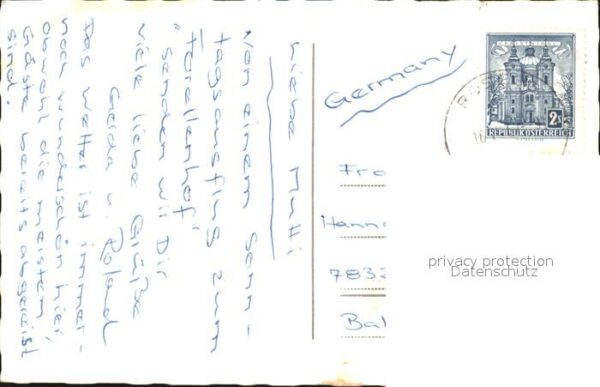 Liebe Mutti
von einem Sonn-
tagsausflug zum
"Forellenhof"
senden wir Dir
viele liebe Grüße
Gerda u. Roland
Das Wetter ist immer-
noch wunderschön hier,
obwohl die meisten
Gäste bereits abgereist
sind.
Germany
CHRISTKINDL
2
S
REPUBLIK ÖSTERREICH
Fra
Hanna
7832
Bal
privacy protection
Datenschutz